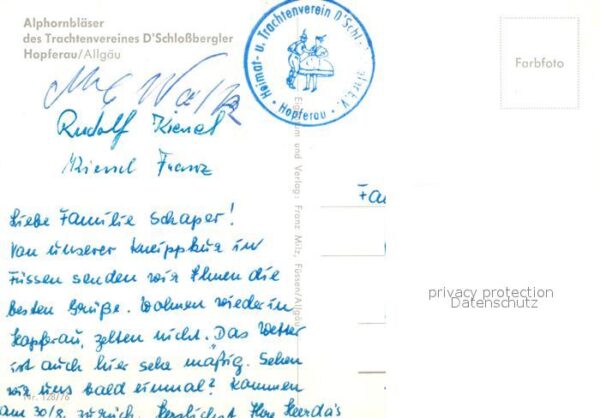 Alphornbläser
des Trachtenvereines D'Schloßbergler
Hopferau/Allgäu
Heimat- u. Trachtenverein D'Schl
Hopferau
Farbfoto
Rudolf
Franz
Eigentum und Verlag: Franz Milz, Füssen/Allgäu
Fa
Liebe Familie Schaper!
Von unserer Kneippkur in
Füssen senden wir Ihnen die
besten Grüße. Wohnen wieder in
Hopferau, zelten nicht. Das Wetter
ist auch hier sehr mäßig. Sehen
wir uns bald einmal? Kommen
Nr. 128/76
am 30/8. zurück. Herzlichst Ihre
privacy protection
Datenschutz